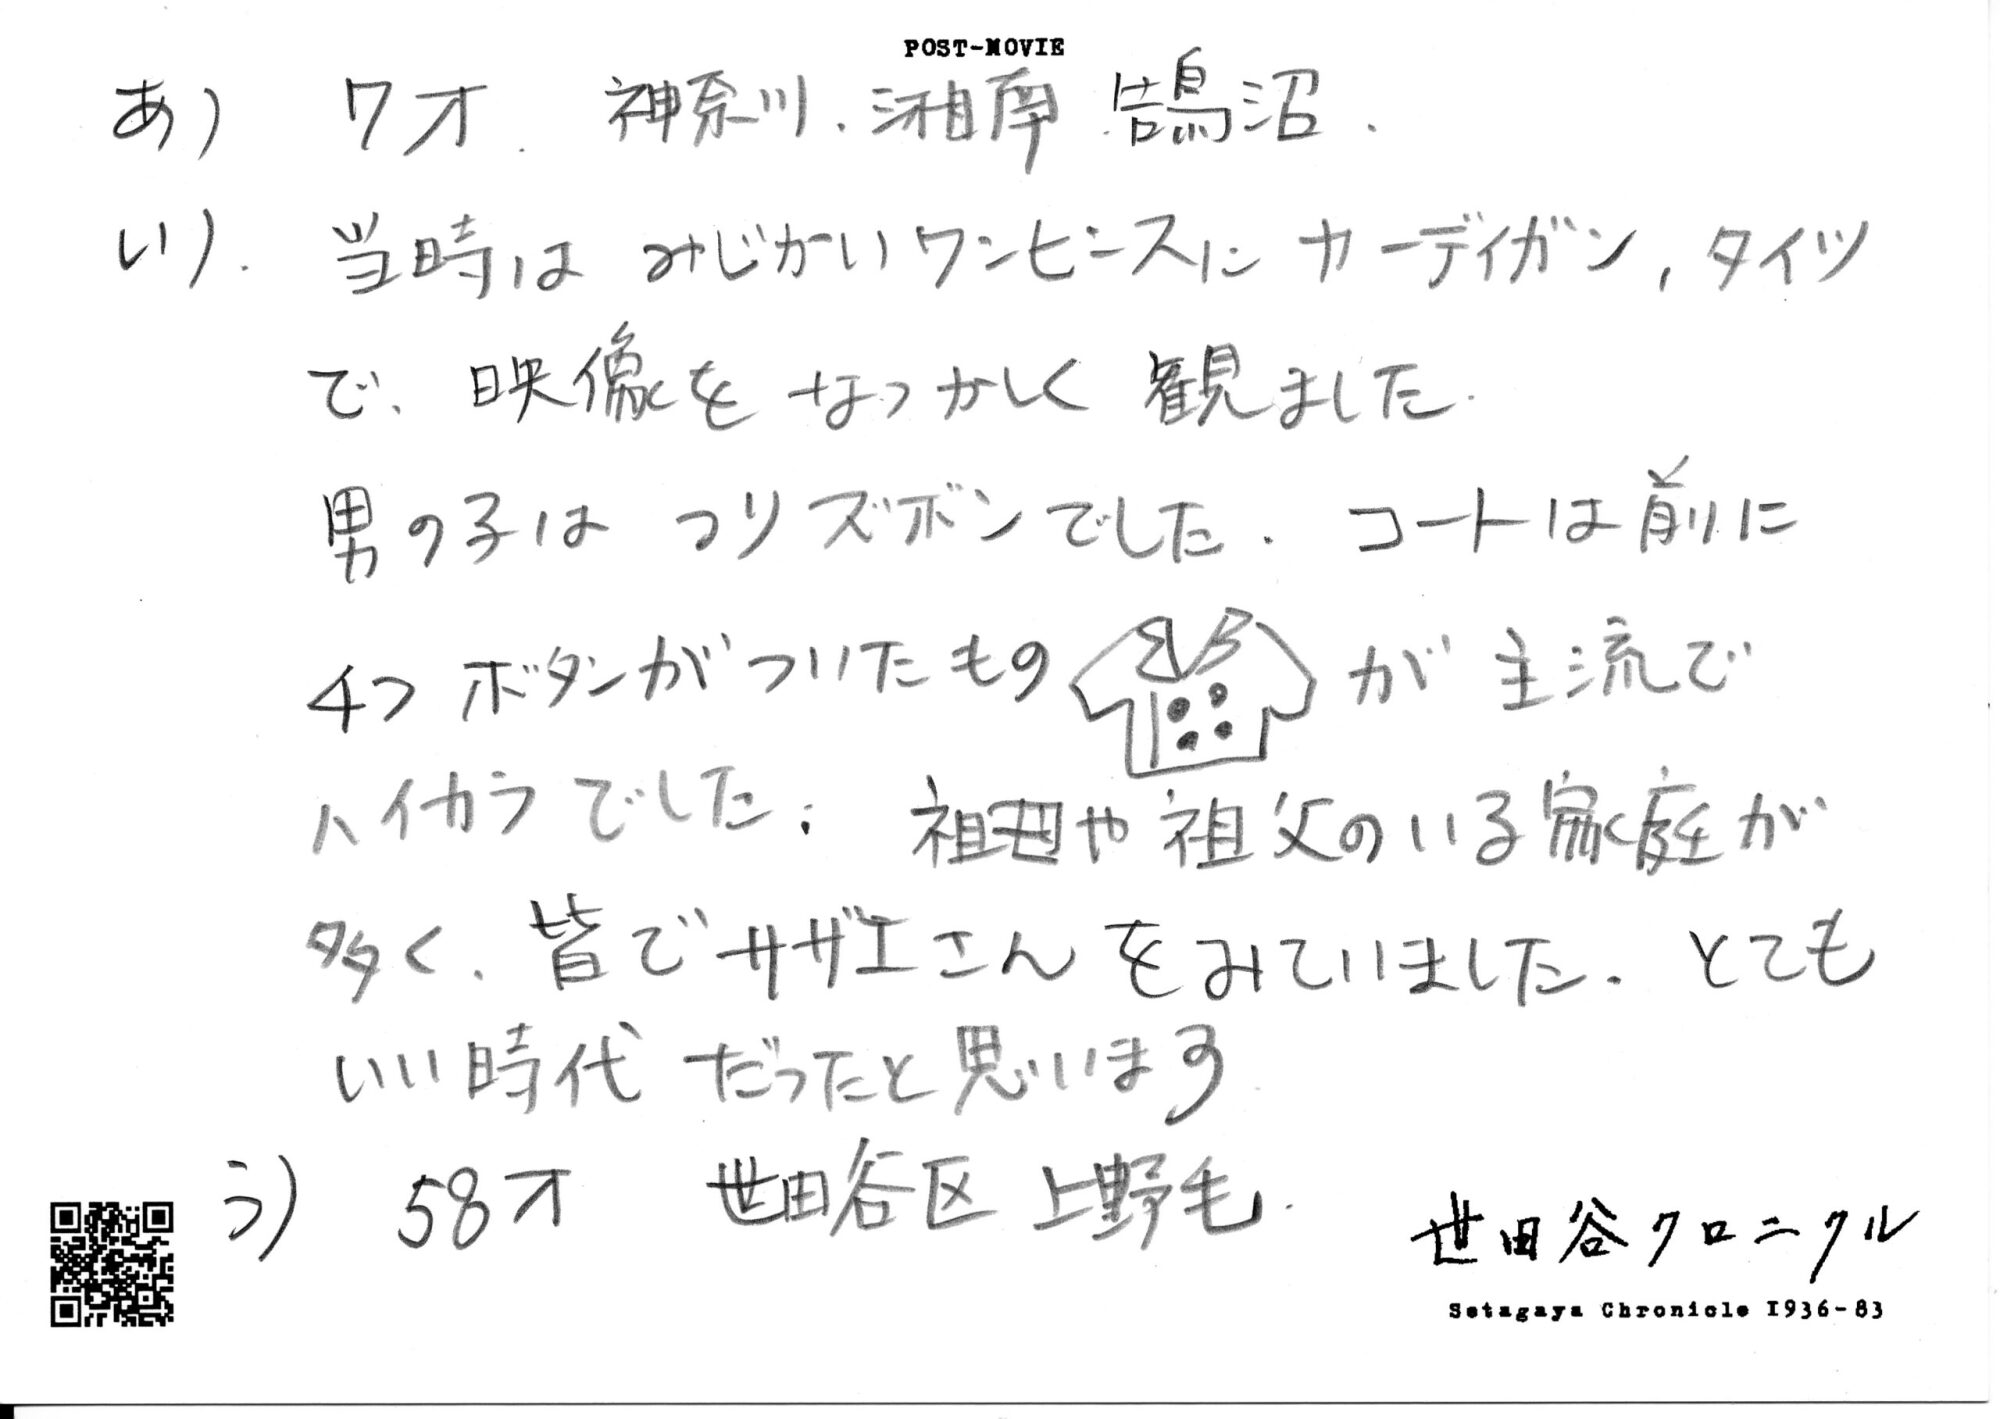 POST-MOVIE
あ) 7才. 神奈川.湘南 鵠沼.
い). 当時は みじかいワンピースに カーディガン,タイツ
で、映像を なつかしく 観ました.
男の子は つりズボンでした. コートは前に
4つ ボタンがついたもの が 主流で
ハイカラでした. 祖母や祖父のいる家庭が
多く、皆でサザエさんをみていました. とても
いい時代 だったと思います
う) 58才 世田谷区 上野毛.
世田谷クロニクル
Setagaya Chronicle 1936-83